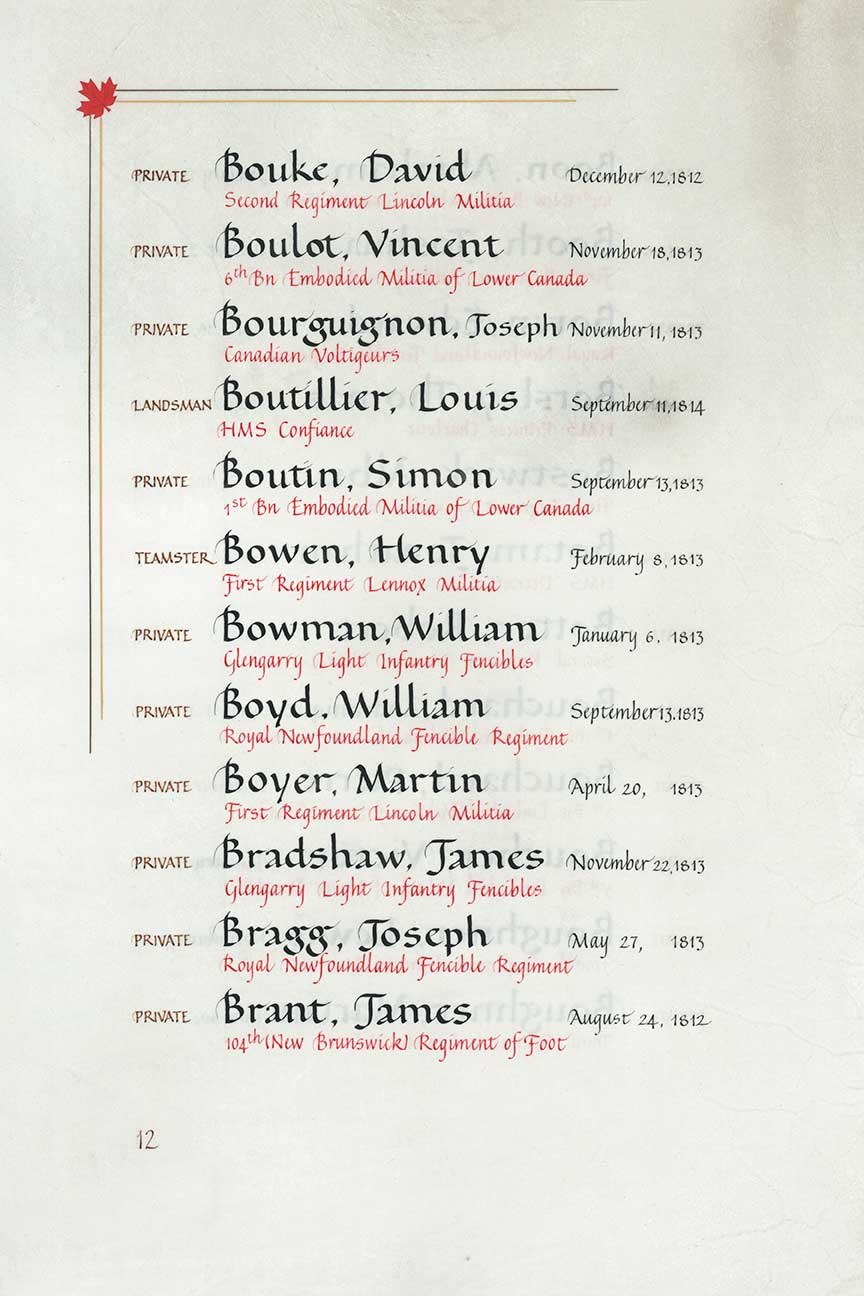 PRIVATE Bouke, David December 12, 1812
Second Regiment Lincoln Militia
PRIVATE Boulot, Vincent November 18, 1813
6th Bn Embodied Militia of Lower Canada
PRIVATE Bourguignon, Joseph November 11, 1813
Canadian Voltigeurs
LANDSMAN Boutillier, Louis September 11, 1814
HMS Confiance
PRIVATE Boutin, Simon September 13, 1813
1st Bn Embodied Militia of Lower Canada
TEAMSTER Bowen, Henry February 8, 1813
First Regiment Lennox Militia
PRIVATE Bowman, William January 6, 1813
Glengarry Light Infantry Fencibles
PRIVATE Boyd, William September 13, 1813
Royal Newfoundland Fencible Regiment
PRIVATE Boyer, Martin April 20, 1813
First Regiment Lincoln Militia
PRIVATE Bradshaw, James November 22, 1813
Glengarry Light Infantry Fencibles
PRIVATE Bragg, Joseph May 27, 1813
Royal Newfoundland Fencible Regiment
PRIVATE Brant, James August 24, 1812
104th (New Brunswick) Regiment of Foot
12